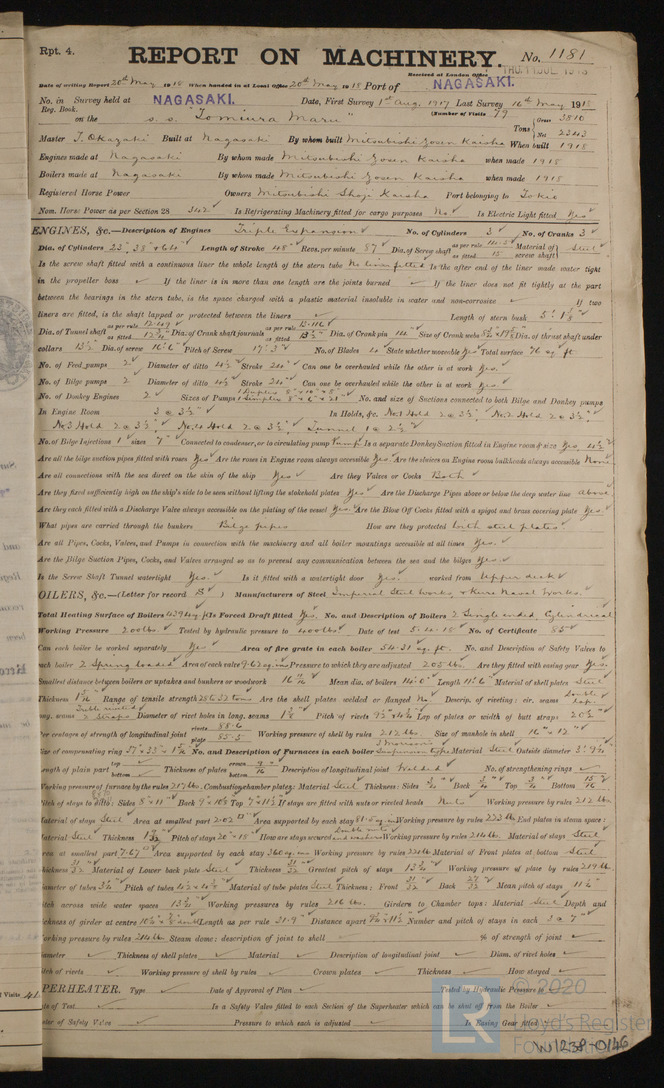 Rpt. 4.
REPORT ON MACHINERY.
No. 1181
Received at London Office
THU. 11 JUL. 1918
Date of writing Report 20th May 1918 When handed in at Local Office 20th May 1918 Port of NAGASAKI.
No. in Survey held at NAGASAKI. Date, First Survey 1st Aug. 1917 Last Survey 16th May 1918
Reg. Book. (Number of Visits 79
on the s.s. "Tomiura Maru" Tons Gross 3810 Net 2343
Master T. Okazaki Built at Nagasaki By whom built Mitsubishi Zosen Kaisha When built 1918
Engines made at Nagasaki By whom made Mitsubishi Zosen Kaisha when made 1918
Boilers made at Nagasaki By whom made Mitsubishi Zosen Kaisha when made 1918
Registered Horse Power Owners Mitsubishi Shoji Kaisha Port belonging to Tokio
Nom. Horse Power as per Section 28 342 Is Refrigerating Machinery fitted for cargo purposes No Is Electric Light fitted Yes
ENGINES, &c.—Description of Engines Triple Expansion No. of Cylinders 3 No. of Cranks 3
Dia. of Cylinders 23" 38" & 64" Length of Stroke 48" Revs. per minute 57 Dia. of Screw shaft as per rule as fitted 15" Material of screw shaft Steel
Is the screw shaft fitted with a continuous liner the whole length of the stern tube No liner fitted Is the after end of the liner made water tight
in the propeller boss ✓ If the liner is in more than one length are the joints burned ✓ If the liner does not fit tightly at the part
between the bearings in the stern tube, is the space charged with a plastic material insoluble in water and non-corrosive ✓ If two
liners are fitted, is the shaft lapped or protected between the liners ✓ Length of stern bush 5'. 1⅛"
Dia. of Tunnel shaft as per rule as fitted Dia. of Crank shaft journals as per rule as fitted 13½" Dia. of Crank pin 14" Size of Crank webs Dia. of thrust shaft under
collars 13½" Dia. of screw 16'.6" Pitch of Screw 17'.3" No. of Blades 4 State whether moveable Yes Total surface 76 sq. ft
No. of Feed pumps 2 Diameter of ditto 4½" Stroke 24" Can one be overhauled while the other is at work Yes.
No. of Bilge pumps 2 Diameter of ditto 4½" Stroke 24" Can one be overhauled while the other is at work Yes.
No. of Donkey Engines 2 Sizes of Pumps No. and size of Suctions connected to both Bilge and Donkey pumps
In Engine Room 3 @ 3½" In Holds, &c. No. 1 Hold 2 @ 3½", No. 2 Hold 2 @ 3½",
No. 3 Hold 2 @ 3½", No. 4 Hold 2 @ 3½", Tunnel 1 @ 2½"
No. of Bilge Injections 1 sizes 7" Connected to condenser, or to circulating pump Pump Is a separate Donkey Suction fitted in Engine room & size Yes, 4½"
Are all the bilge suction pipes fitted with roses Yes Are the roses in Engine room always accessible Yes. Are the sluices on Engine room bulkheads always accessible None
Are all connections with the sea direct on the skin of the ship Yes Are they Valves or Cocks Both
Are they fixed sufficiently high on the ship's side to be seen without lifting the stokehold plates Yes Are the Discharge Pipes above or below the deep water line above
Are they each fitted with a Discharge Valve always accessible on the plating of the vessel Yes. Are the Blow Off Cocks fitted with a spigot and brass covering plate Yes.
What pipes are carried through the bunkers Bilge pipes How are they protected with steel plates.
Are all Pipes, Cocks, Valves, and Pumps in connection with the machinery and all boiler mountings accessible at all times Yes.
Are the Bilge Suction Pipes, Cocks, and Valves arranged so as to prevent any communication between the sea and the bilges Yes.
Is the Screw Shaft Tunnel watertight Yes. Is it fitted with a watertight door Yes. worked from Upper deck
OILERS, &c.—(Letter for record S Manufacturers of Steel Imperial Steel works, & Kure Naval Works.
Total Heating Surface of Boilers Is Forced Draft fitted Yes. No. and Description of Boilers 2 Single ended, Cylindrical
Working Pressure 200 lbs Tested by hydraulic pressure to 400 lbs Date of test 5-4-18 No. of Certificate 85
Can each boiler be worked separately Yes Area of fire grate in each boiler 54.31 sq. ft. No. and Description of Safety Valves to
each boiler 2 Spring loaded Area of each valve 9.62 sq. ins Pressure to which they are adjusted 205 lbs. Are they fitted with easing gear Yes.
Smallest distance between boilers or uptakes and bunkers or woodwork Mean dia. of boilers 14'.0" Length 11'.6" Material of shell plates Steel
Thickness Range of tensile strength 28 to 32 tons Are the shell plates welded or flanged No Descrip. of riveting: cir. seams Double lap.
long. seams Double riveted 2 Straps Diameter of rivet holes in long. seams Pitch of rivets Lap of plates or width of butt straps 20½"
Per centages of strength of longitudinal joint rivets 88.6 plate 85.5 Working pressure of shell by rules 212 lbs Size of manhole in shell 16" x 12"
Size of compensating ring No. and Description of Furnaces in each boiler 3 Morison's Suspension type Material Steel Outside diameter
Length of plain part top bottom Thickness of plates crown bottom Description of longitudinal joint Welded No. of strengthening rings ✓
Working pressure of furnace by the rules 217 lbs. Combustion chamber plates: Material Steel Thickness: Sides Back Top Bottom
Pitch of stays to ditto: Sides 8" x 11" Back Top If stays are fitted with nuts or riveted heads Nuts Working pressure by rules 212 lbs
Material of stays Steel Area at smallest part 2.02 Area supported by each stay Working pressure by rules 223 lbs End plates in steam space:
Material Steel Thickness Pitch of stays 20" x 18" How are stays secured Double nuts and washers Working pressure by rules 214 lbs. Material of stays Steel
Area at smallest part 7.67 Area supported by each stay 360 sq. ins Working pressure by rules Material of Front plates at bottom Steel
Thickness Material of Lower back plate Steel Thickness Greatest pitch of stays 13¾" Working pressure of plate by rules
Diameter of tubes Pitch of tubes Material of tube plates Steel Thickness: Front Back Mean pitch of stays
Pitch across wide water spaces Working pressures by rules 216 lbs. Girders to Chamber tops: Material Steel Depth and
thickness of girder at centre Length as per rule 31.9" Distance apart Number and pitch of stays in each 3 @ 7"
Working pressure by rules 214 lbs Steam dome: description of joint to shell ✓ % of strength of joint ✓
Diameter ✓ Thickness of shell plates ✓ Material ✓ Description of longitudinal joint ✓ Diam. of rivet holes ✓
Pitch of rivets ✓ Working pressure of shell by rules ✓ Crown plates ✓ Thickness ✓ How stayed ✓
SUPERHEATER. Type ✓ Date of Approval of Plan ✓ Tested by Hydraulic Pressure to
Date of Test ✓ Is a Safety Valve fitted to each Section of the Superheater which can be shut off from the Boiler ✓
Diameter of Safety Valve ✓ Pressure to which each is adjusted ✓ Is Easing Gear fitted
© 2020
Lloyd's Register
Foundation
W1238-0146